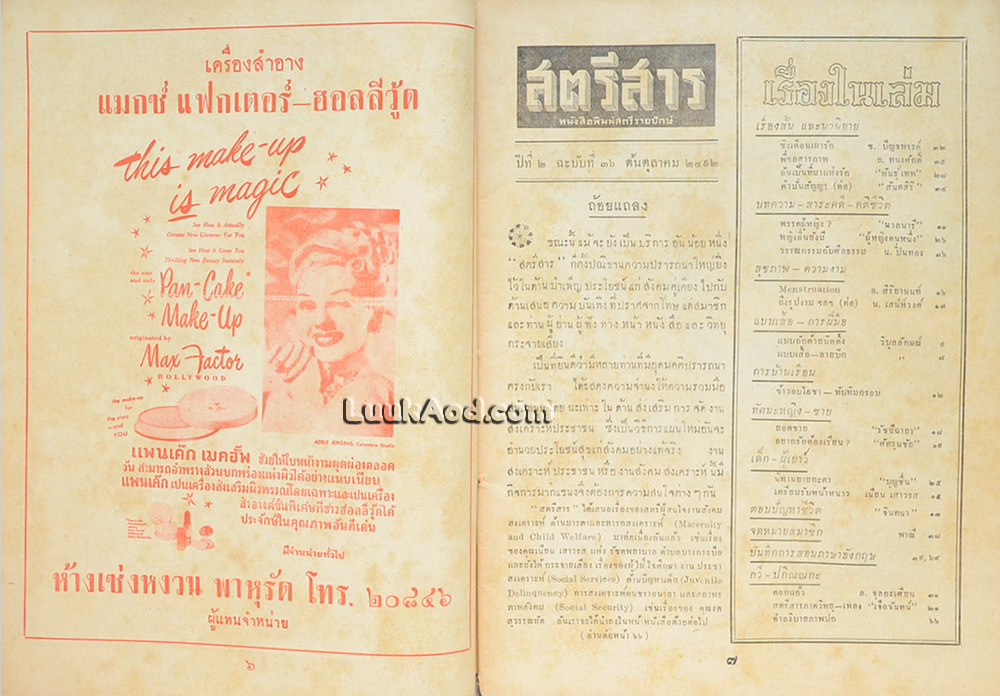 เครื่องสำอาง
แมกซ์ แฟกเตอร์–ฮอลลีวู้ด
this make-up
is magic
See How It Actually
Creates New Glamour For You
See How It Gives You
Thrilling New Beauty Instantly
the one
and only
Pan-Cake
Make-Up
originated by
Max Factor
HOLLYWOOD
the make-up
for
the stars
—and
YOU
ADELE JERGENS, Columbia Studio
แพนเค๊ก เมคอัพ ช่วยให้ใบหน้างามผุดผ่องตลอด
วัน สามารถอำพรางส่วนบกพร่องแห่งผิวได้อย่างแนบเนียน
แพนเค๊ก เปนเครื่องส่งเสริมผิวพรรณโดยเฉพาะและเปนเครื่อง
สำอางค์ชั้นพิเศษที่ชาวฮอลลีวู้ดได้
ประจักษ์ในคุณภาพอันดีเด่น
มีจำหน่ายทั่วไป
ห้างเซ่งหงวน พาหุรัด โทร. ๒๐๘๔๖
ผู้แทนจำหน่าย
๖
LuukAod.com
สตรีสาร
หนังสือพิมพ์สตรีรายปักษ์
ปีที่ ๒ ฉะบับที่ ๓๖ ต้นตุลาคม ๒๔๙๒
ถ้อยแถลง
ขณะนี้ แม้ จะ ยัง เป็น บริการ อัน น้อย หนึ่ง
"สตรีสาร" ก็ตั้งปณิธานความปรารถนาใหญ่ยิ่ง
ไว้ในด้าน บำเพ็ญ ประโยชน์ แก่ สังคม คู่เคียง ไปกับ
ด้านเสนอ ความ บันเทิง ที่ปราศจาก โทษ แด่สมาชิก
และท่าน ผู้ อ่าน ผู้ ฟัง ทาง หน้า หนัง สือ และ วิทยุ
กระจายเสียง
เป็นที่ยินดีว่ามีหลายท่านที่มีอุดมคติปรารถนา
ตรงกับเรา ได้ส่งความจำนงให้ความร่วมมือ
โดยเฉพาะ ใน ด้าน ส่งเสริม การ จัด งาน
สงเคราะห์ประชาชน ซึ่งเป็นวิธีการแผนใหม่อันจะ
อำนวยประโยชน์สุขแก่สังคมอย่างแท้จริง งาน
สงเคราะห์ ประชาชน หรือ งาน สังคม สงเคราะห์ นี้มี
กิจการมากแขนงจึงต้องการ ความ สนใจ ต่าง ๆ กัน
"สตรีสาร" ได้เสนอเรื่องของสตรีผู้สนใจงานสังคม
สงเคราะห์ ด้านมารดาและทารกสงเคราะห์ (Maternity
and Child Welfare) มาต่อเนื่องกันแล้ว เช่นเรื่อง
ของคุณเนียน เสาวรส แห่ง รัชตพยาบาล ตำบลบางกระบือ
และยังให้ กระจายเสียง เรื่องของผู้ไปศึกษา งาน ประชา
สงเคราะห์ (Social Services) ด้านปัญหาเด็ก (Juvenile
Delinquency) การสงเคราะห์คนชราอนาถา และสภาพร
ภาพสังคม (Social Security) เช่นเรื่องของ
สุวรรณทัต อันเราจะได้นำลงในหน้าหนังสือด้วยต่อไป
(อ่านต่อหน้า ๖๖)
๗
เรื่องในเล่ม
เรื่องสั้น และนวนิยาย
ช. บัญจพรรค์ ๓๒
พี่ขอสารภาพ ถ. ทนงศักดิ์ ๓๕
อันเป็นที่มาแห่งรัก "พันธุ์เทพ" ๒๘
คำมั่นสัญญา (ต่อ) "สันตสิริ" ๓๔
บทความ–สาระคดี–คติชีวิต
พรรคผู้หญิง ? "นวลนารี" ๑๑
หญิงอื่นยังมี "ผู้หญิงคนหนึ่ง" ๒๖
วรรณกรรมกับศีลธรรม น. ปิ่นทอง ๓๖
สุขภาพ–ความงาม
Menstruation อ. สิริอานนท์ ๑๖
ถึงรูปงาม ฯลฯ (ต่อ) น. เสน่ห์วงศ์ ๑๗
แบบเสื้อ–การฝีมือ
แบบถักด้วยนิตติ้ง วิบูลลักษณ์ ๙
แบบเสื้อ–ลายปัก " ๘
การบ้านเรือน
ข้าวอบโอชา–ทับทิมกรอบ ๑๒
ทัศนะหญิง–ชาย
ยอดชาย "รัชนีฉาย" ๑๘
อยากรักต้องเรียน ? "ศัตรุนชัย" ๑๙
เด็ก–ผู้เยาว์
นิทานยายกะตา "บุญชื่น" ๒๕
เตรียมรับหน้าหนาว เนียน เสาวรส ๑๕
ตอบปัญหาชีวิต "จินตนา" ๑๓
จดหมายสมาชิก พาณี ๓๘
บันทึกการสอนภาษาอังกฤษ ๓๙, ๖๔
กวี–ปกิณณกะ
ดอกแก้ว อ. จุลละเศียน ๓๑
สตรีสารภาควิทยุ–เพลง "เจือจันทน์" ๒๑
คำอธิบายภาพปก ๖๖